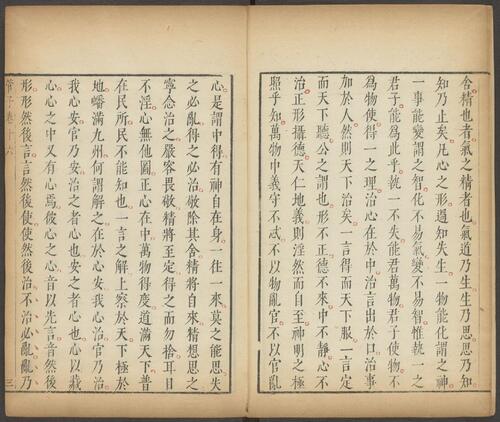 舍精也者氣之精者也氣道乃生生乃思思乃知
知乃止矣凡心之形過知失生一物能化謂之神
一事能變謂之智化不易氣變不易智惟執一之
君子能為此乎執一不失能君萬物君子使物不
為物使得一之理治心在於中治言出於口治事
加於人然則天下治矣一言得而天下服一言定
而天下聽公之謂也形不正德不來中不靜心不
治正形攝德天仁地義則淫然而自至神明之極
照乎知萬物中義守不忒不以物亂官不以官亂
心是謂中得有神自在身一往一來莫之能思失
之必亂得之必治敬除其舍精將自來精想思之
寧念治之嚴容畏敬精將至定得之而勿捨耳目
不淫心無他圖正心在中萬物得度道滿天下普
在民所民不能知也一言之解上察於天下極於
地蟠滿九州何謂解之在於心安我心治官乃治
我心安官乃安治之者心也安之者心也心以藏
心心之中又有心焉彼心之心音以先言音然後
形形然後言言然後使使然後治不治必亂亂乃
管子卷十六 三